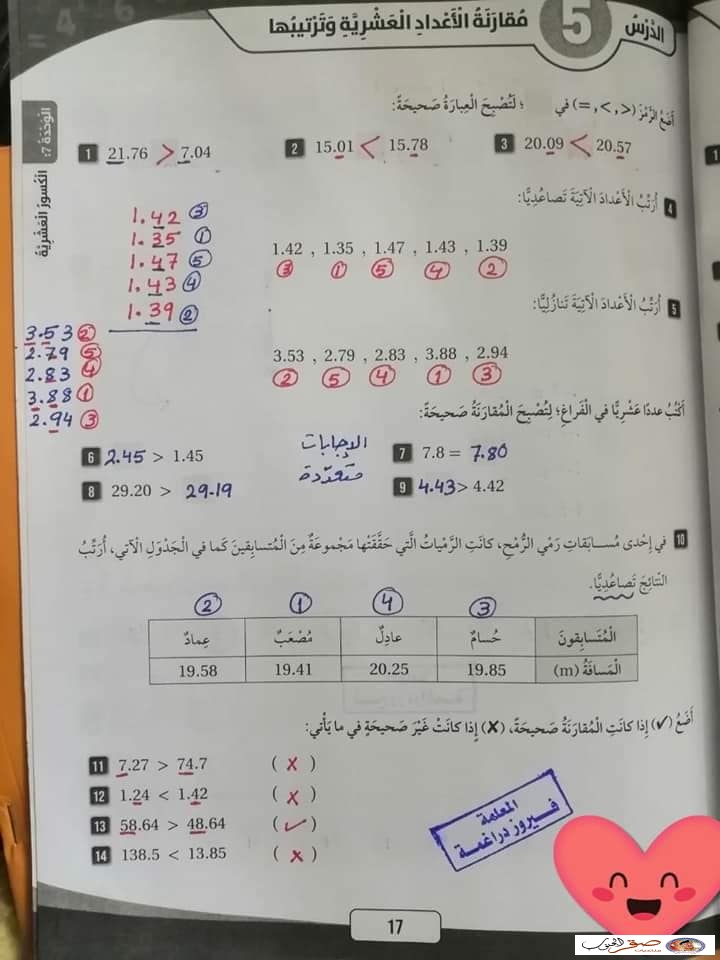 الدَّرْسُ 5 مُقارَنَةُ الْأَعْدادِ الْعَشْرِيَّةِ وَتَرْتيبُها
الْوَحْدَةُ 7:
الْكُسورُ الْعَشْرِيَّةُ
أَضَعُ الرَّمْزَ (<, >, =) في ؛ لِتُصْبِحَ الْعِبارَةُ صَحيحَةً:
1 21.76 > 7.04
2 15.01 < 15.78
3 20.09 < 20.57
4 أُرَتِّبُ الْأَعْدادَ الْآتِيَةَ تَصاعُدِيًّا:
1.42 , 1.35 , 1.47 , 1.43 , 1.39
3 1 5 4 2
1.42 3
1.35 1
1.47 5
1.43 4
1.39 2
5 أُرَتِّبُ الْأَعْدادَ الْآتِيَةَ تَنازُلِيًّا:
3.53 , 2.79 , 2.83 , 3.88 , 2.94
2 5 4 1 3
3.53 2
2.79 5
2.83 4
3.88 1
2.94 3
أَكْتُبُ عددًا عَشْرِيًّا في الْفَراغِ؛ لِتُصْبِحَ الْمُقارَنَةُ صَحيحَةً:
6 2.45 > 1.45
7 7.8 = 7.80
الإجابات
متعدّدة
8 29.20 > 29.19
9 4.43 > 4.42
10 في إِحْدى مُسابَقاتِ رَمْيِ الرُّمْحِ، كانَتِ الرَّمْياتُ الَّتي حَقَّقَتْها مَجْموعَةٌ مِنَ الْمُتسابِقينَ كَما في الْجَدْوَلِ الْآتي، أُرَتِّبُ
النَّتائِجَ تَصاعُدِيًّا.
3 4 1 2
الْمُتَسابِقونَ حُسامٌ عادِلٌ مُصْعَبٌ عِمادٌ
الْمَسافَةُ (m) 19.85 20.25 19.41 19.58
أَضَعُ (✓) إِذا كانَتِ الْمُقارَنَةُ صَحيحَةً، (✗) إِذا كانَتْ غَيْرَ صَحيحَةٍ في ما يَأْتي:
11 7.27 > 74.7 ( ✗ )
12 1.24 < 1.42 ( ✗ )
13 58.64 > 48.64 ( ✓ )
14 138.5 < 13.85 ( ✗ )
المعلمة
فيروز دراغمة
17